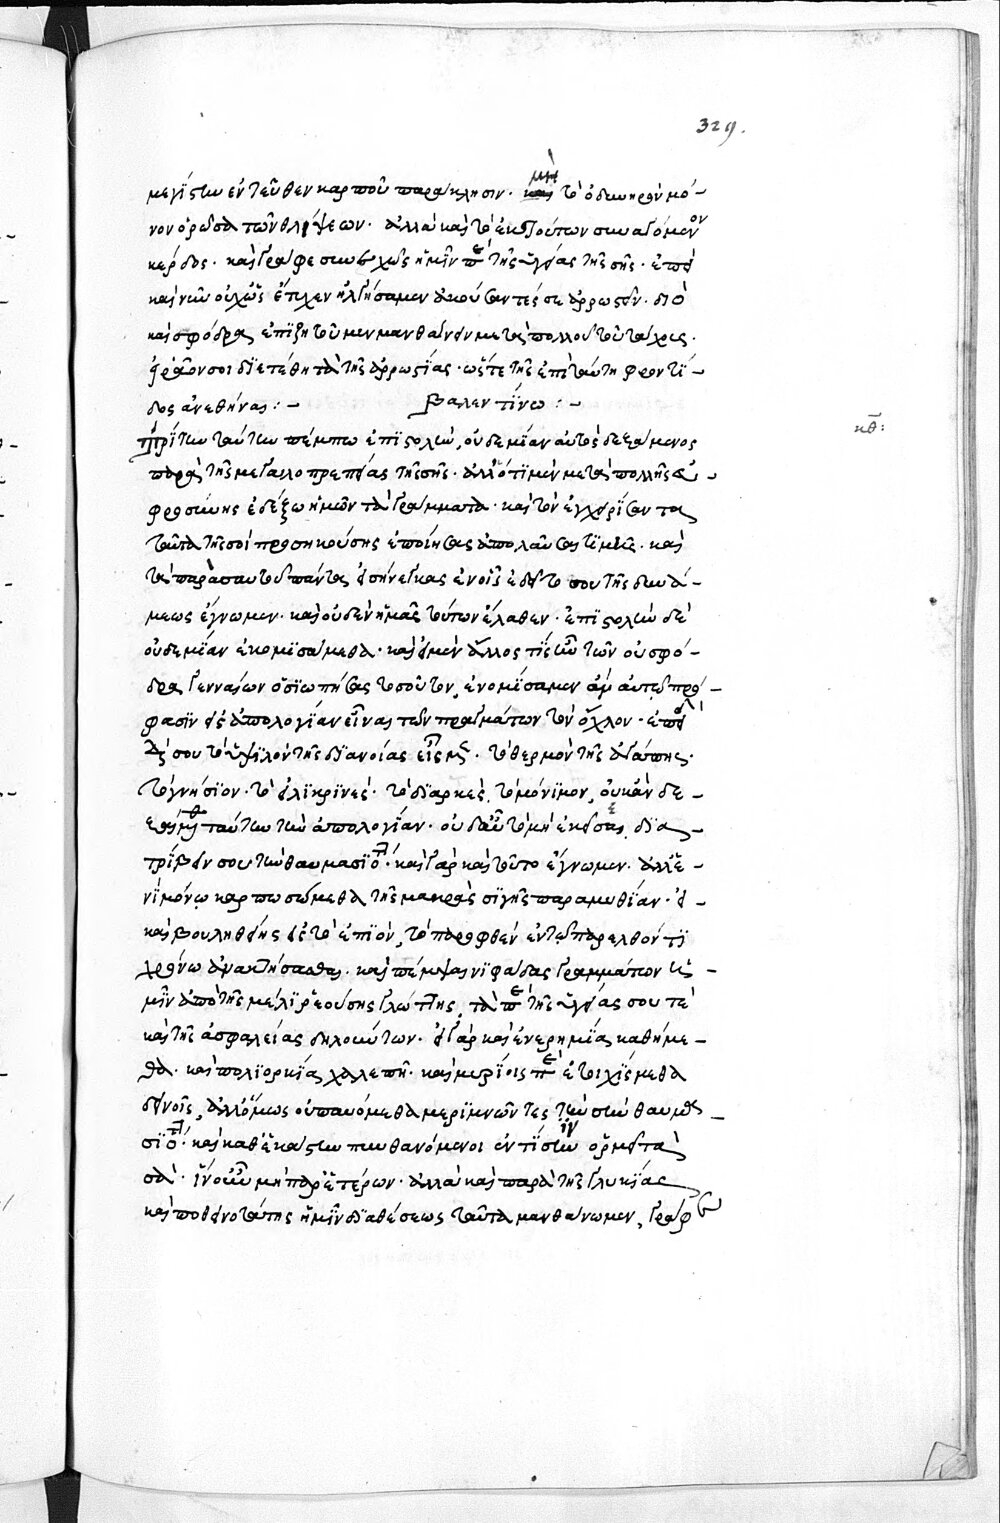 329.
μεγίστην ἐντεῦθεν καρποῦ παράκλησιν. μὴ τὸ ὀδυνηρὸν μό-
νον ὁρῶσα τῶν θλίψεων. ἀλλὰ καὶ τὸ ἐκ τούτων συναγόμενον
κέρδος. καὶ γράφε συνεχῶς ἡμῖν περὶ τῆς ὑγείας τῆς σῆς. ἐπεὶ
καὶ νῦν οὐχ ὡς ἔτυχεν ἠλγήσαμεν ἀκούσαντές σε ἀρρωστεῖν. διὸ
καὶ σφόδρα ἐπιζητοῦμεν μανθάνειν μετὰ πολλοῦ τοῦ τάχους.
εἰ ῥᾷόν σοι διετέθη τὰ τῆς ἀρρωστίας. ὥστε τῆς ἐπὶ ταύτη φροντί-
δος ἀνεθῆναι: - Βαλεντίνω: -
κθ:
Τρίτην ταύτην πέμπω ἐπιστολὴν, οὐδεμίαν αὐτὸς δεξάμενος
παρὰ τῆς μεγαλοπρεπείας τῆς σῆς. ἀλλ' ὅτι μὲν μετὰ πολλῆς εὐ-
φροσύνης ἐδέξω ἡμῶν τὰ γράμματα. καὶ τὸν ἐγχειρίσαντα
ταῦτα τῆς σοὶ προσηκούσης ἐποίησας ἀπολαῦσαι τιμῆς. καὶ
τὰ παρὰ σαυτοῦ πάντα εἰσήνεγκας ἐν οἷς ἐδεῖτό σου τῆς δυνά-
μεως ἔγνωμεν. καὶ οὐδὲν ἡμᾶς τούτων ἔλαθεν. ἐπιστολὴν δὲ
οὐδεμίαν ἐκομισάμεθα. καὶ εἰ μὲν ἄλλος τις ἦν τῶν οὐ σφό-
δρα γενναίων ὁ σιωπήσας τοσοῦτον, ἐνομίσαμεν ἂν αὐτῷ πρό-
φασιν εἰς ἀπολογίαν εἶναι τῶν πραγμάτων τὸν ὄχλον. ἐπειδὴ
δέ σου τὸ ὑψηλὸν τῆς διανοίας ἴσμεν. τὸ θερμὸν τῆς ἀγάπης.
τὸ γνήσιον. τὸ εἰλικρινές. τὸ διαρκὲς, τὸ μόνιμον, οὐκ ἂν δε-
ξαίμεθα ταύτην τὴν ἀπολογίαν. οὐδ' ἂν τὸ μὴ ἐκεῖσε δια-
τρίβειν σου τὴν θαυμασιότητα. καὶ γὰρ καὶ τοῦτο ἔγνωμεν. ἀλλ' ἑ-
νὶ μόνῳ καρπωσώμεθα τῆς μακρᾶς σιγῆς παραμυθίαν. εἰ
καὶ βουληθείης εἰς τὸ ἐπιὸν, τὸ παροφθὲν ἐν τῷ παρελθόντι
χρόνω ἀνακτήσασθαι. καὶ πέμψαι νιφάδας γραμμάτων ἡ-
μῖν ἀπὸ τῆς μελιρρεούσης γλώττης, τὰ περὶ τῆς ὑγείας σου τὲ
καὶ τῆς ἀσφαλείας δηλούντων. εἰ γὰρ καὶ ἐν ἐρημία καθήμε-
θα. καὶ πολιορκία χαλεπῆ. καὶ μυρίοις περιεστοιχίσμεθα
δεινοῖς, ἀλλ' ὅμως οὐ παυόμεθα μεριμνῶντες τὴν σὴν θαυμα-
σιότητα. καὶ καθ' ἑκάστην πυνθανόμενοι ἐν τίσιν ὁρμεῖ τὰ
σά. ἵν' οὖν μὴ παρ' ἑτέρων. ἀλλὰ καὶ παρὰ τῆς γλυκείας
καὶ ποθεινοτάτης ἡμῖν διαθέσεως ταῦτα μανθάνωμεν, γράφειν